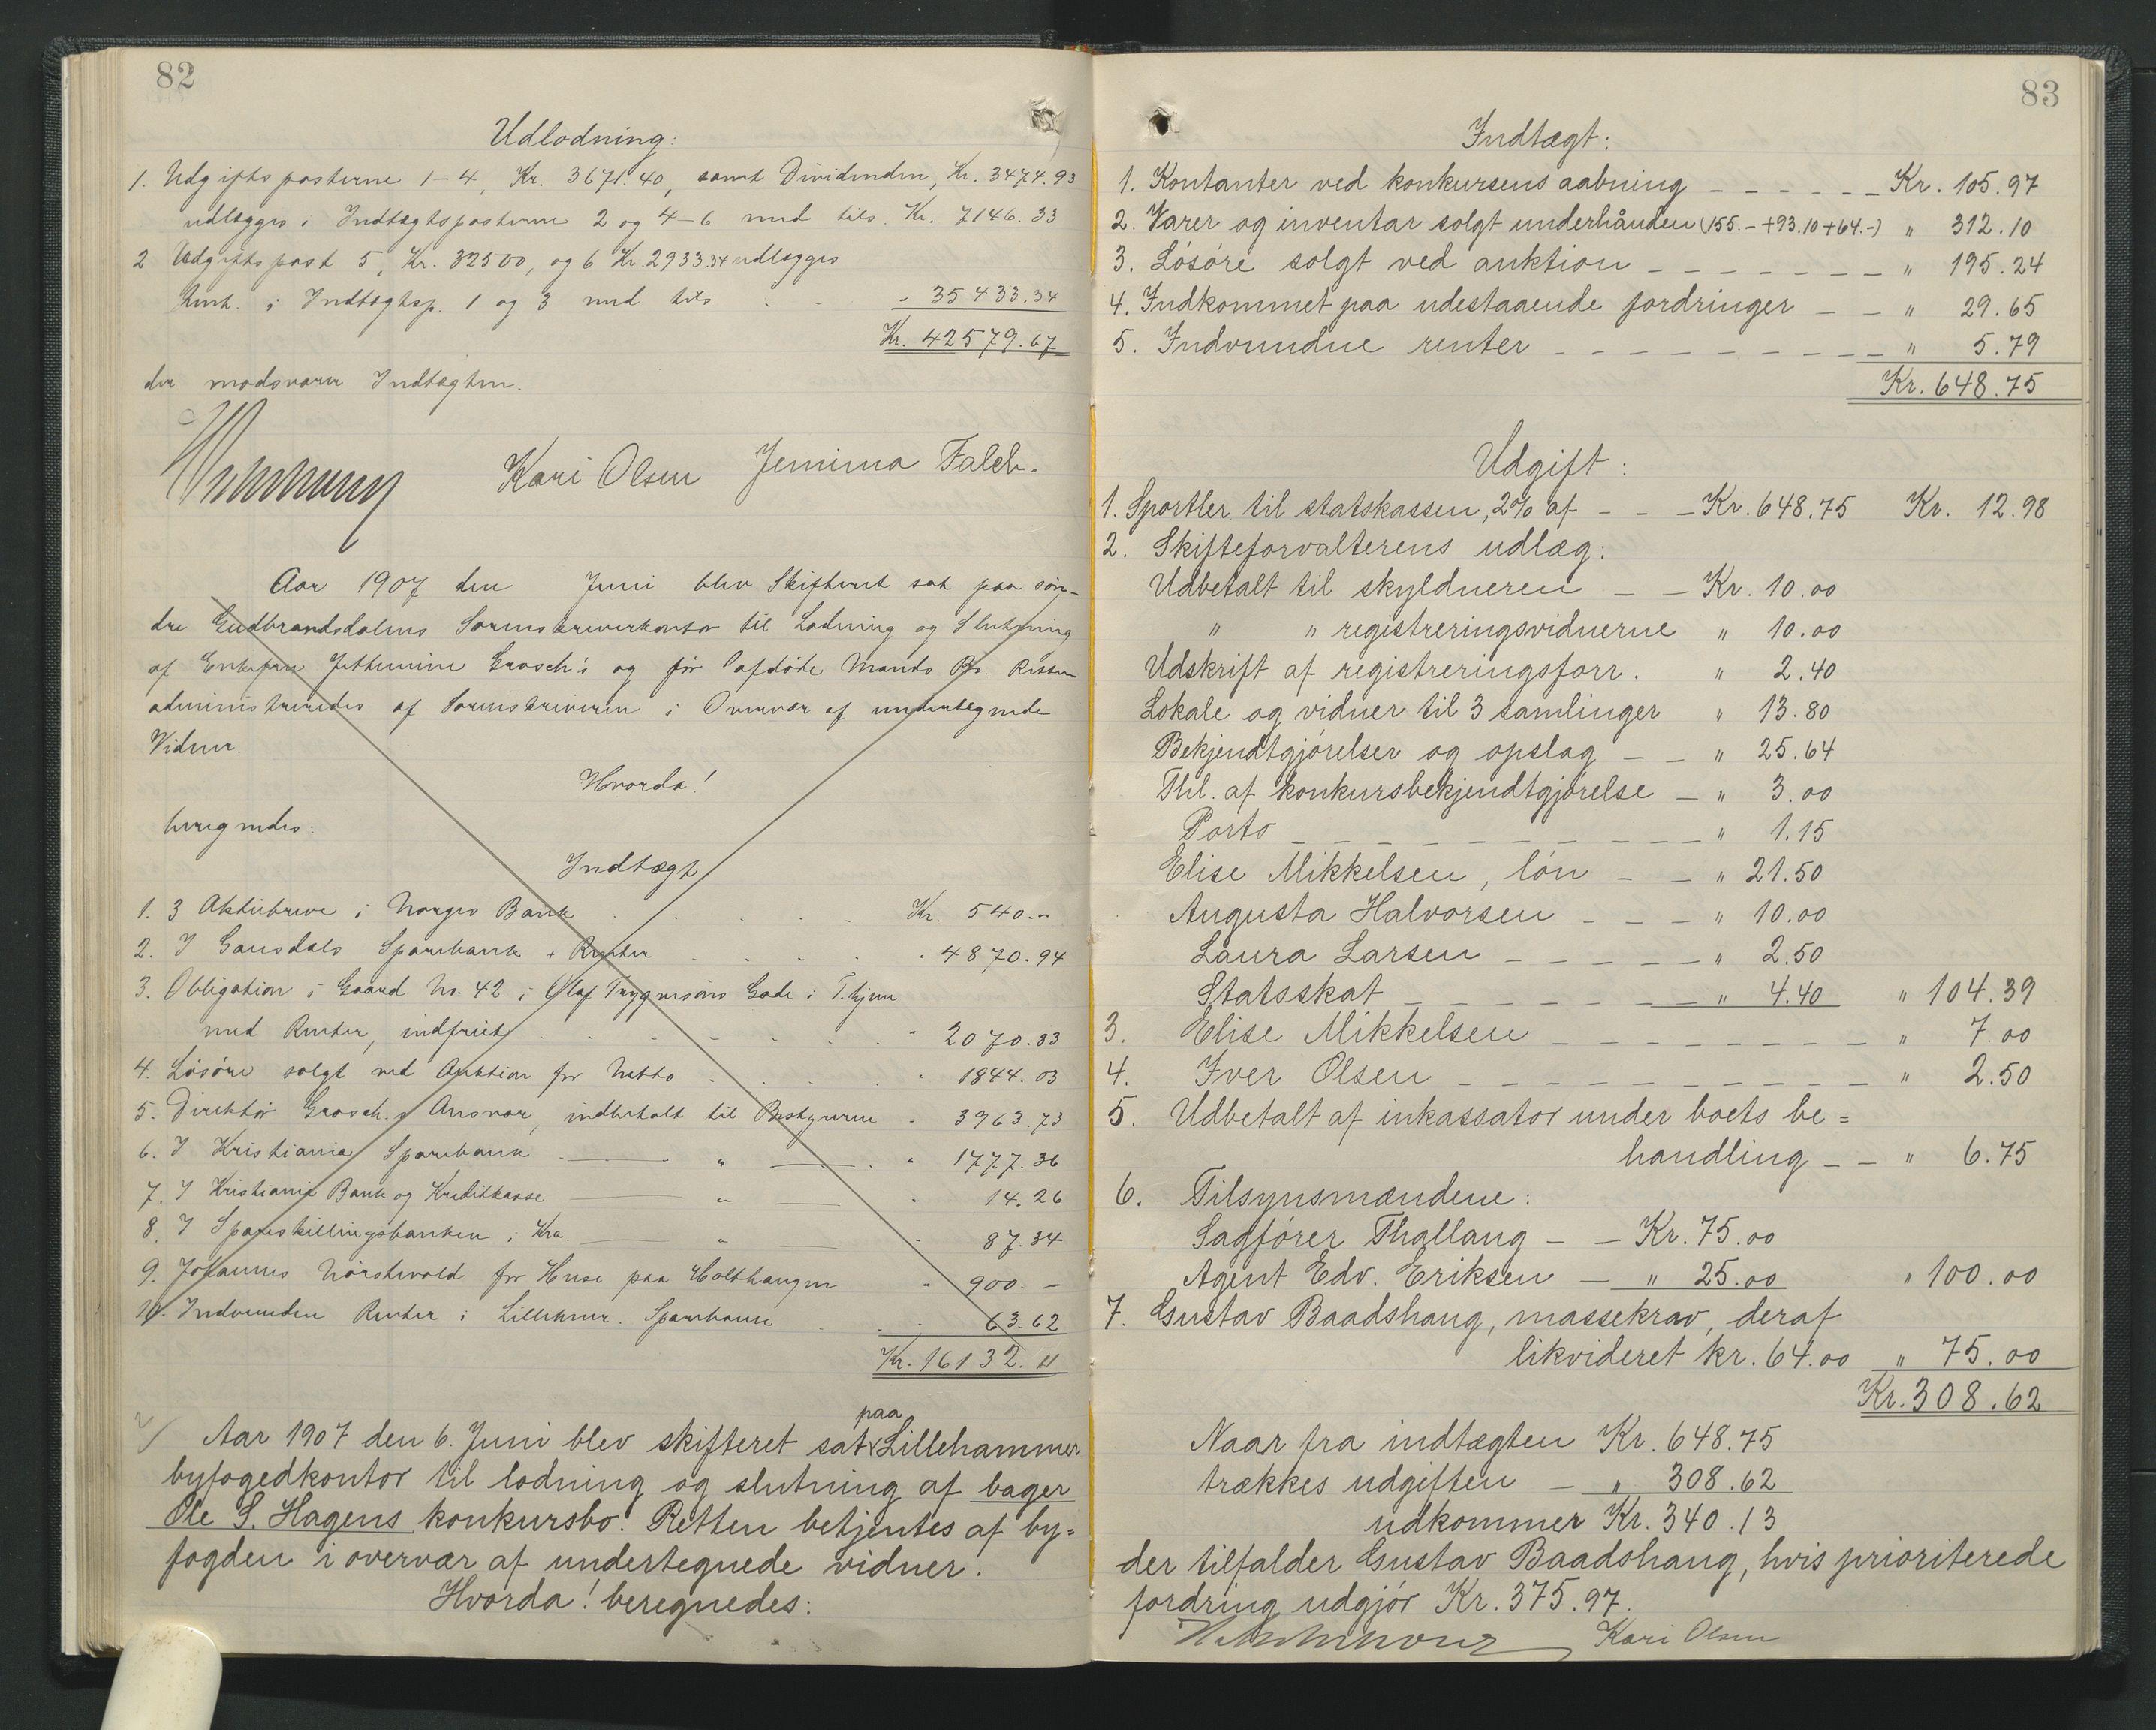 82
Udlodning:
1. Udgiftsposterne 1-4, Kr. 3671.40, samt Dividenden, Kr. 3474.93
udlægges i Indtægtsposterne 2 og 4-6 med tils. Kr. 7146.33
2 Udgiftspost 5, Kr. 32500, og 6 Kr. 2933.34 udlægges
i Indtægtsp. 1 og 3 med tils - 35433.34
Kr. 42579.67
der modsvarer Indtægten.
Kari Olsen Jemima Falch.
Aar 1907 den Juni blev Skifteret sat paa søn-
dre Gudbrandsdalens Sorenskriverkontor til Lodning og Slutning
af Enkefru Jettemine Grosch's og før afdøde Mands Bo. Retten
administreredes af Sorenskriveren i Overvær af undertegnede
Vidner.
Hvorda!
beregnedes:
Indtægt
1. 3 Aktiebreve i Norges Bank Kr. 540.-
2. I Gausdals Sparebank + Renter - 4870.94
3. Obligation i Gaard No. 42 i Olaf Trygvesøns Gade i T.hjem
med Renter, indfriet - 2070.83
4. Løsøre solgt ved Auktion for Netto - 1844.03
5. Direktør Grosch.s Ansvar, indbetalt til Bestyreren - 3963.73
6. I Kristiania Sparebank — " — - 1777.36
7. I Kristiania Bank og Kreditkasse — " — - 14.26
8. I Spareskillingsbanken i Kra. — " — - 87.34
9. Johannes Nørstevold for Huse paa Holthaugen - 900.-
10. Indvunden Renter i Lillehmr. Sparebank - 63.62
Kr. 16132.11
Aar 1907 den 6. Juni blev skifteret sat paa Lillehammer
byfogedkontor til lodning og slutning af bager
Ole S. Hagens konkursbo. Retten betjentes af by=
fogden i overvær af undertegnede vidner.
Hvorda! beregnedes:
83
Indtægt:
1. Kontanter ved konkursens aabning - - - - - - Kr. 105.97
2. Varer og inventar solgt underhånden (155.- + 93.10 + 64.-) " 312.10
3. Løsøre solgt ved auktion - - - - - - - " 195.24
4. Indkommet paa udestaaende fordringer - - " 29.65
5. Indvundne renter - - - - - - - - - " 5.79
Kr. 648.75
Udgift:
1. Sportler til statskassen, 2% af - - - Kr. 648.75 Kr. 12.98
2. Skifteforvalterens udlæg:
Udbetalt til skyldneren - - Kr. 10.00
" " registreringsvidnerne " 10.00
Udskrift af registreringsforr. " 2.40
Lokale og vidner til 3 samlinger " 13.80
Bekjendtgjørelser og opslag - - " 25.64
Thl. af konkursbekjendtgjørelse - " 3.00
Porto - - - - - - - - - - " 1.15
Elise Mikkelsen, løn - - " 21.50
Augusta Halvorsen - - - " 10.00
Laura Larsen - - - - - " 2.50
Statsskat - - - - - - - " 4.40 " 104.39
3. Elise Mikkelsen - - - - - - - - - " 7.00
4. Iver Olsen - - - - - - - - - - " 2.50
5. Udbetalt af inkassator under boets be=
handling - - " 6.75
6. Tilsynsmændene:
Sagfører Thallaug - - Kr. 75.00
Agent Edv. Eriksen - " 25.00 " 100.00
7. Gustav Baadshaug, massekrav, deraf
likvideret kr. 64.00 " 75.00
Kr. 308.62
Naar fra indtægten Kr. 648.75
trækkes udgiften - " 308.62
udkommer Kr. 340.13
der tilfalder Gustav Baadshaug, hvis prioriterede
fordring udgjør Kr. 375.97.
Kari Olsen